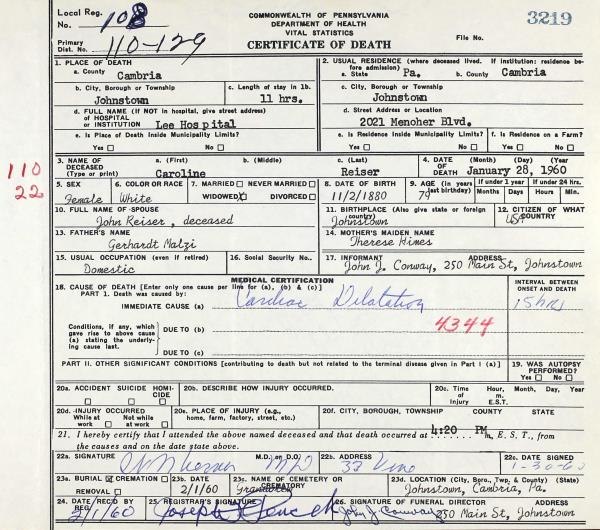 Local Reg. No. 108
COMMONWEALTH OF PENNSYLVANIA
DEPARTMENT OF HEALTH
VITAL STATISTICS
3219
Primary Dist. No. 110-129
CERTIFICATE OF DEATH
File No.
1. PLACE OF DEATH
a. County
Cambria
2. USUAL RESIDENCE (where deceased lived. If institution: residence before admission)
a. State Pa. b. County Cambria
b. City, Borough or Township
Johnstown
c. Length of stay in 1b.
11 hrs.
c. City, Borough or Township
Johnstown
d. FULL NAME (If NOT in hospital, give street address)
OF HOSPITAL
OR INSTITUTION Lee Hospital
d. Street Address or Location
2021 Menoher Blvd.
e. Is Place of Death Inside Municipality Limits?
Yes No
e. Is Residence Inside Municipality Limits?
Yes No
f. Is Residence on a Farm?
Yes No
110
22
3. NAME OF DECEASED
(Type or print)
a. (First) b. (Middle) c. (Last)
Caroline Reiser
4. DATE OF DEATH (Month) (Day) (Year)
January 28, 1960
5. SEX
Female
6. COLOR OR RACE
White
7. MARRIED NEVER MARRIED
WIDOWED X DIVORCED
8. DATE OF BIRTH
11/2/1880
9. AGE (in years last birthday)
79
If under 1 year
Months Days
If under 24 Hrs.
Hours Min.
10. FULL NAME OF SPOUSE
John Reiser, deceased
11. BIRTHPLACE (Also give state or foreign country)
Johnstown
12. CITIZEN OF WHAT COUNTRY
USA
13. FATHER'S NAME
Gerhardt Malzi
14. MOTHER'S MAIDEN NAME
Therese Himes
15. USUAL OCCUPATION (even if retired)
Domestic
16. Social Security No.
17. INFORMANT ADDRESS
John J. Conway, 250 Main St, Johnstown
MEDICAL CERTIFICATION
18. CAUSE OF DEATH [Enter only one cause per line for (a), (b) & (c)]
PART 1. Death was caused by:
IMMEDIATE CAUSE (a) Cardiac Dilatation
INTERVAL BETWEEN ONSET AND DEATH
15 hrs
4344
Conditions, if any, which gave rise to above cause (a) stating the underlying cause last.
DUE TO (b)
DUE TO (c)
PART II. OTHER SIGNIFICANT CONDITIONS [contributing to death but not related to the terminal disease given in Part I (a)]
19. WAS AUTOPSY PERFORMED?
Yes No
20a. ACCIDENT SUICIDE HOMICIDE
20b. DESCRIBE HOW INJURY OCCURRED.
20c. Time of Injury
Hour, m. E.S.T.
Month, Day, Year
20d. INJURY OCCURRED
While at work Not while at work
20e. PLACE OF INJURY (e.g., home, farm, factory, street, etc.)
20f. CITY, BOROUGH, TOWNSHIP COUNTY STATE
21. I hereby certify that I attended the above named deceased and that death occurred at 4:20 PM m, E. S. T., from
the causes and on the date state above.
22a. SIGNATURE M.D. or D.O.
MD
22b. ADDRESS
22c. DATE SIGNED
1-30-60
23a. BURIAL CREMATION
REMOVAL
23b. DATE
2/1/60
23c. NAME OF CEMETERY OR CREMATORY
Grandview
23d. LOCATION (City, Boro., Twp., & County) (State)
Johnstown, Cambria, Pa.
24. DATE REC'D BY REG.
2/1/60
25. REGISTRAR'S SIGNATURE
Joseph
26. SIGNATURE OF FUNERAL DIRECTOR ADDRESS
John J. Conway 250 Main St, Johnstown